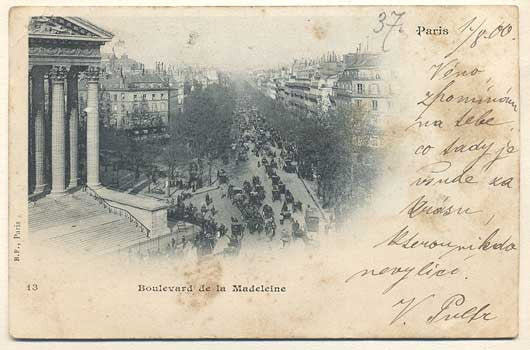 37.
Paris 1/8.00
Věno,
vzpomínám
na tebe,
co tady je
všude za
krásu,
kterou nikdo
nevylíčí.
V.
B.F., Paris
13 Boulevard de la Madeleine